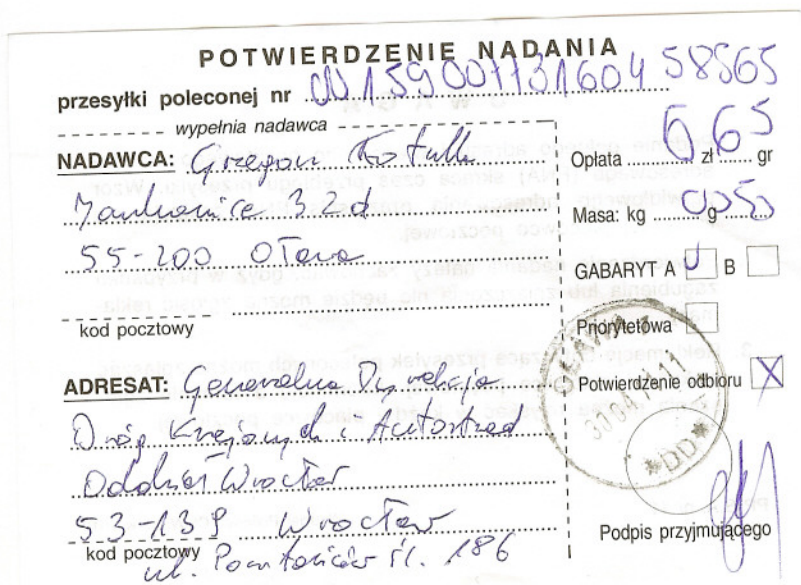 POTWIERDZENIE NADANIA
przesyłki poleconej nr 00159007731604 58565
wypełnia nadawca
NADAWCA: Grzegorz
Jankowice 32d
55-200 Oława
kod pocztowy
ADRESAT: Generalna Dyrekcja
Dróg Krajowych i Autostrad
Oddział Wrocław
53-139 Wrocław
kod pocztowy
ul. Powstańców Śl. 186
Opłata 6 zł 65 gr
Masa: kg g
GABARYT A B
Priorytetowa
Potwierdzenie odbioru X
OŁAWA 1
DD
Podpis przyjmującego